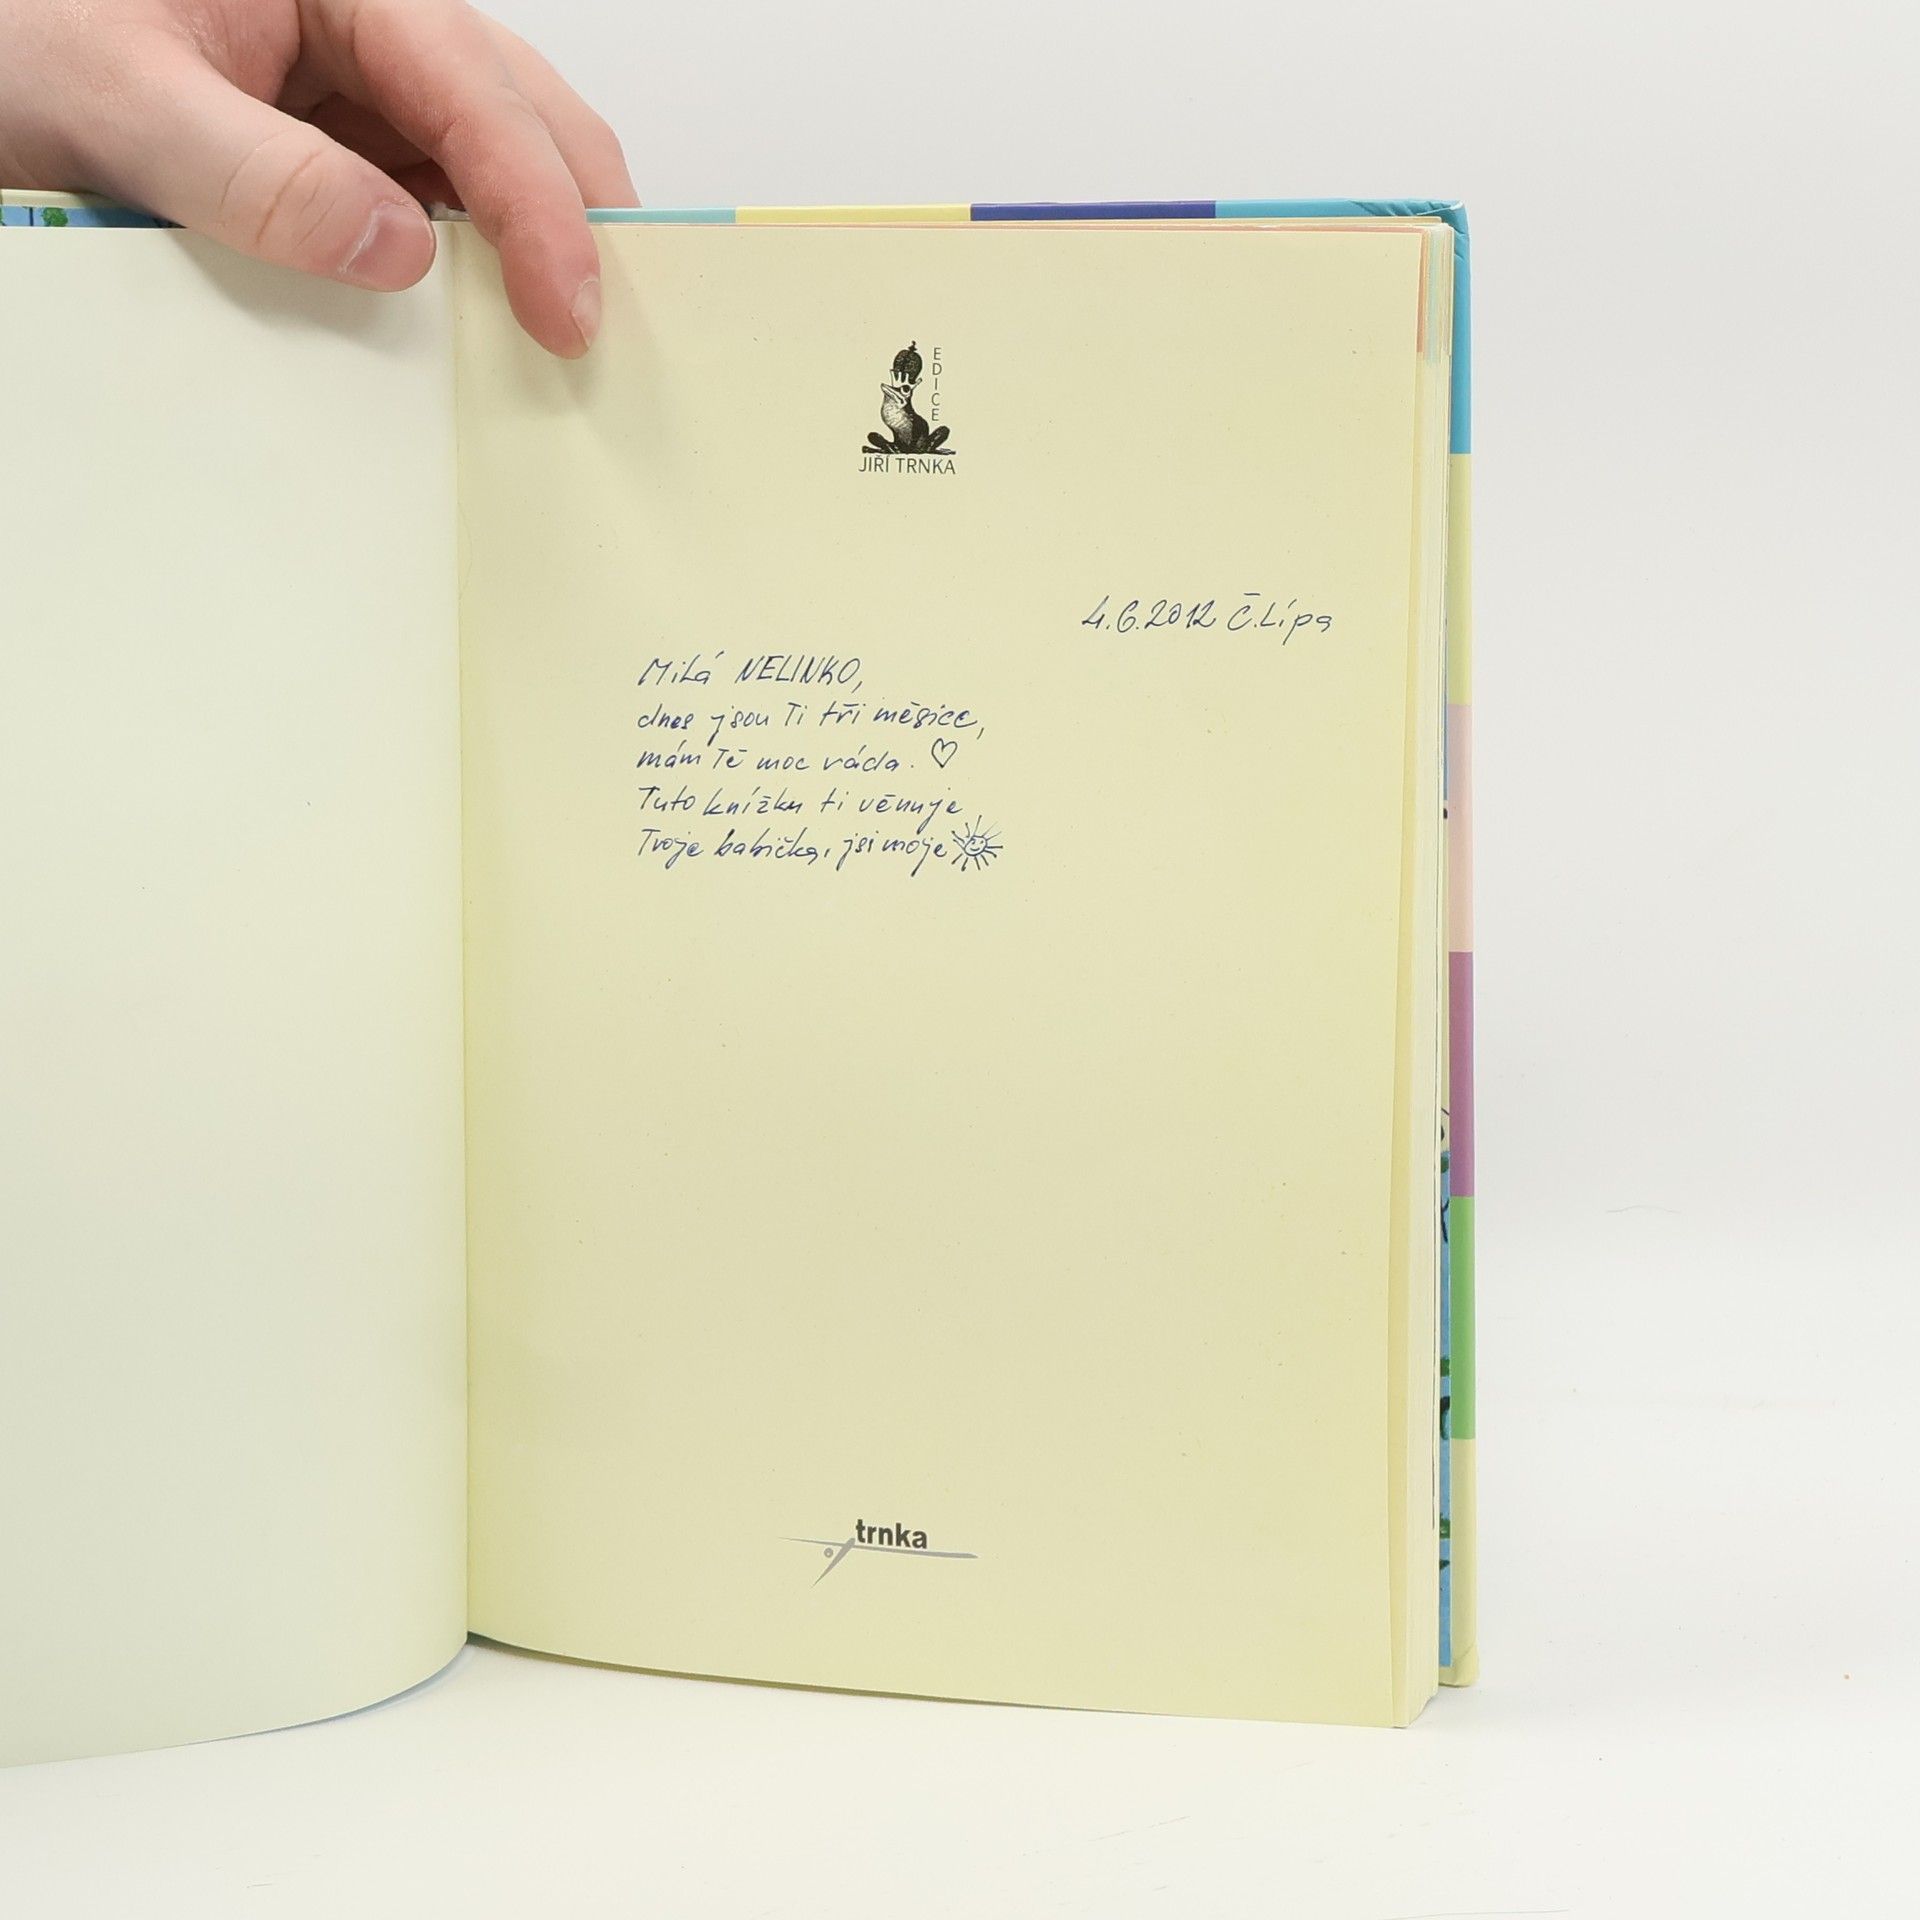 EDICE
JIŘÍ TRNKA
4.6.2012 Č.Lípa
Milá NELINKO,
dnes jsou Ti tři měsíce,
mám Tě moc ráda. ♡
Tuto knížku ti věnuje
Tvoje babička, jsi moje
trnka